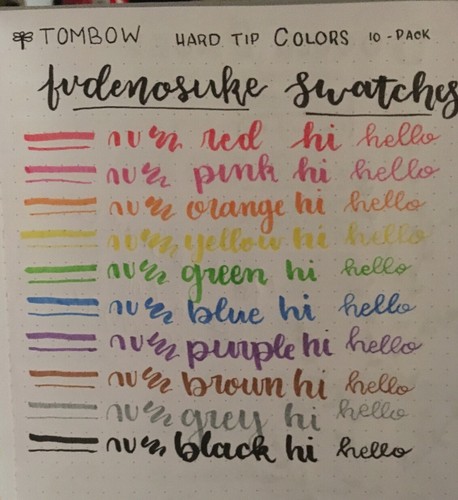 TOMBOW HARD TIP COLORS 10-PACK
fudenosuke swatches
red hi hello
pink hi hello
orange hi hello
yellow hi hello
green hi hello
blue hi hello
purple hi hello
brown hi hello
grey hi hello
black hi hello